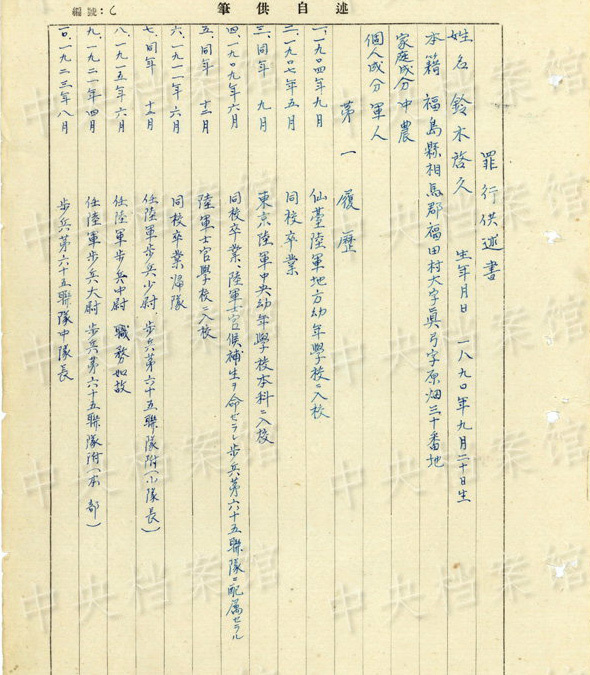 編號:6
筆供自述
罪行供述書
姓名 鈴木啓久 生年月日 一八九〇年九月二十日生
本籍 福島縣相馬郡福田村大字眞弓字原畑三十番地
家庭成分 中農
個人成分 軍人
第一 履歷
一、一九〇四年九月 仙臺陸軍地方幼年學校ニ入校
二、一九〇七年五月 同校卒業
三、同年 九月 東京陸軍中央幼年學校本科ニ入校
四、一九〇九年六月 同校卒業、陸軍士官候補生ヲ命ゼラレ步兵第六十五聯隊ニ配屬セラル
五、同年 十二月 陸軍士官學校ニ入校
六、一九一一年六月 同校卒業歸隊
七、同年 十二月 任陸軍步兵少尉、步兵第六十五聯隊附(小隊長)
八、一九一五年六月 任陸軍步兵中尉 職務如故
九、一九二一年四月 任陸軍步兵大尉 步兵第六十五聯隊附(本部)
一〇、一九二三年八月 步兵第六十五聯隊中隊長
中央档案馆
中央档案馆
中央档案馆
中央档案馆